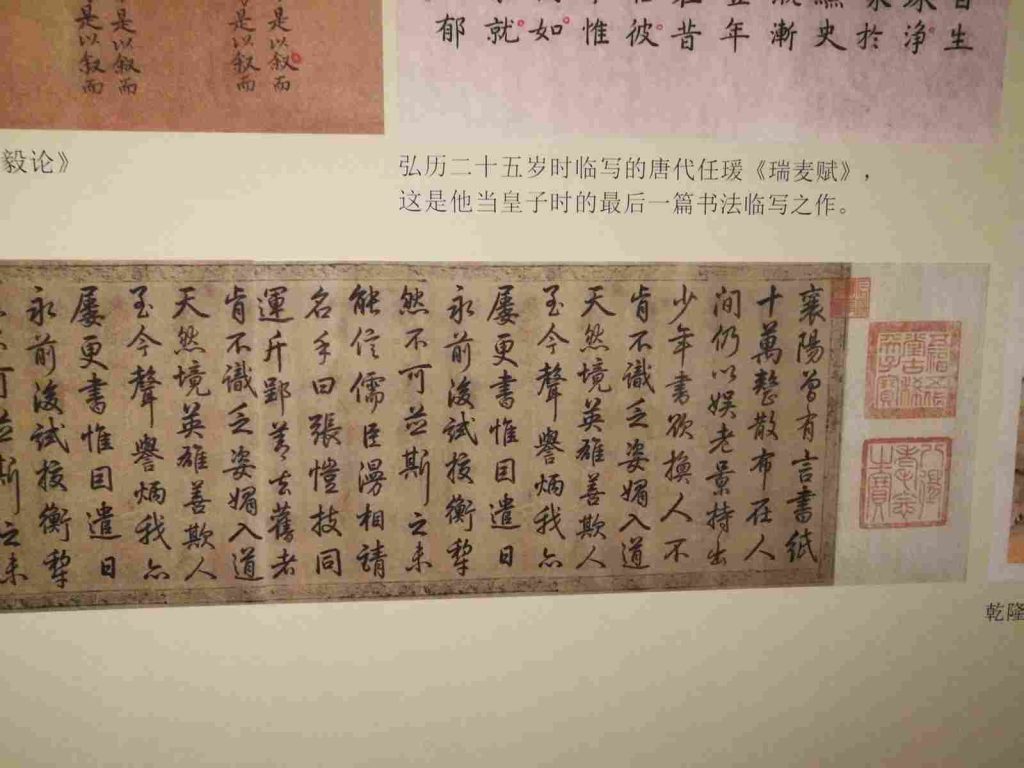 是以叙而
是以叙而
是以叙而
是以叙而
生
净
於
史
漸
年
昔
彼
惟
如
就
郁
毅论》
弘历二十五岁时临写的唐代任瑗《瑞麦赋》，
这是他当皇子时的最后一篇书法临写之作。
八徵耄念之寶
襄陽曾有言書紙
十萬整散布在人
间仍以娱老景持出
少年書欲换人不
肯不識乏姿媚入道
天然境英雄善欺人
至今聲譽炳我亦
屡更書惟目遣日
永前後試按衡犁
然不可並斯之未
能信儒臣漫相請
名手曰張愷技同
運斤郢去舊者
肯不識乏姿媚入道
天然境英雄善欺人
至今聲譽炳我亦
屡更書惟目遣日
永前後試按衡犁
不可並斯之未
乾隆